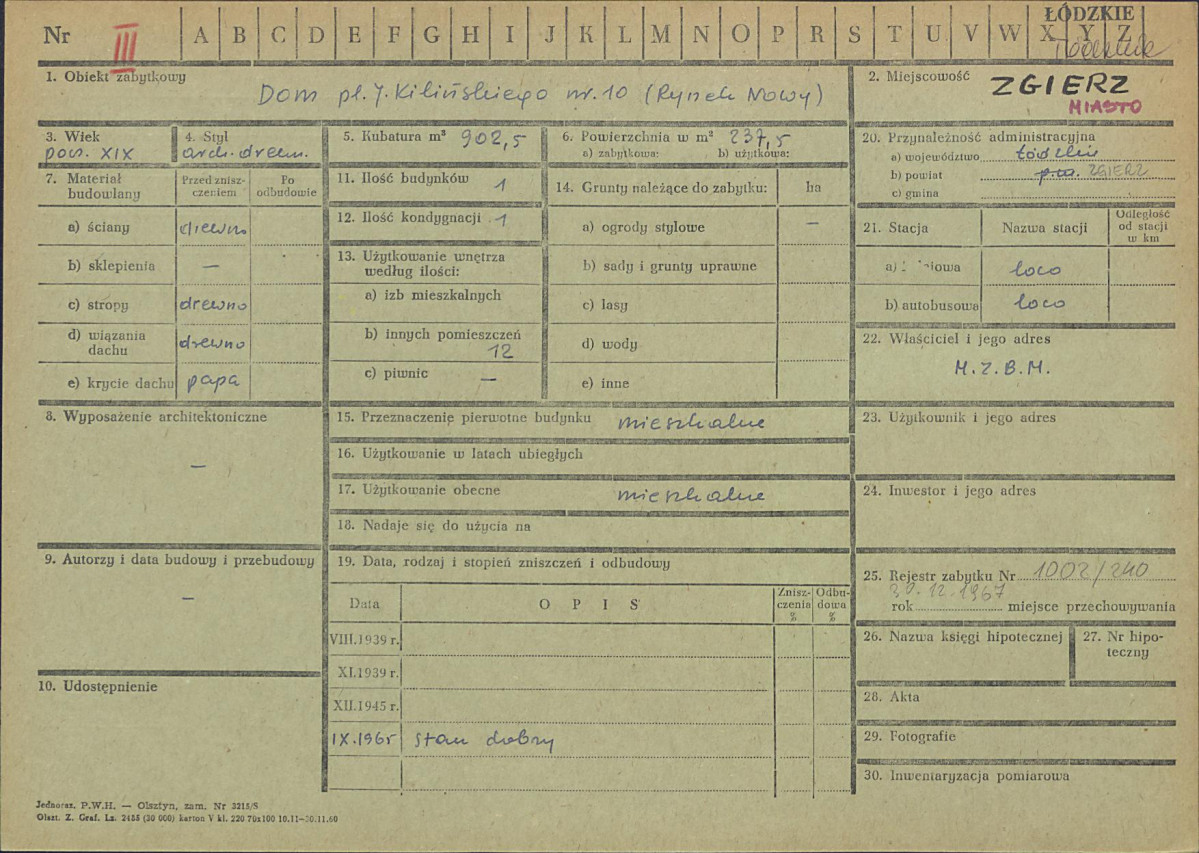 Nr III A B C D E F G H I J K L M N O P R S T U V W X Y Z
ŁÓDZKIE
1. Obiekt zabytkowy
Dom pl. J. Kilińskiego nr. 10 (Rynek Nowy)
2. Miejscowość
ZGIERZ
MIASTO
3. Wiek
poł. XIX
4. Styl
arch. drewn.
5. Kubatura m³ 902,5
6. Powierzchnia w m² 237,5
a) zabytkowa: b) użytkowa:
7. Materiał budowlany
Przed zniszczeniem
Po odbudowie
a) ściany drewno
b) sklepienia —
c) stropy drewno
d) wiązania dachu drewno
e) krycie dachu papa
8. Wyposażenie architektoniczne
—
9. Autorzy i data budowy i przebudowy
—
10. Udostępnienie
11. Ilość budynków 1
12. Ilość kondygnacji 1
13. Użytkowanie wnętrza
według ilości:
a) izb mieszkalnych
b) innych pomieszczeń
12
c) piwnic —
14. Grunty należące do zabytku: ha
a) ogrody stylowe —
b) sady i grunty uprawne
c) lasy
d) wody
e) inne
15. Przeznaczenie pierwotne budynku mieszkalne
16. Użytkowanie w latach ubiegłych
17. Użytkowanie obecne mieszkalne
18. Nadaje się do użycia na
19. Data, rodzaj i stopień zniszczeń i odbudowy
Data
OPIS
Znisz-
czenia
%
Odbu-
dowa
%
VIII.1939 r.
XI.1939 r.
XII.1945 r.
IX.1965 stan dobry
20. Przynależność administracyjna
a) województwo łódzkie
b) powiat ZGIERZ
c) gmina
21. Stacja
Nazwa stacji
Odległość
od stacji
w km
a) loco
b) autobusowa loco
22. Właściciel i jego adres
M.Z.B.M.
23. Użytkownik i jego adres
24. Inwestor i jego adres
25. Rejestr zabytku Nr 1002/240
30.12.1967
rok miejsce przechowywania
26. Nazwa księgi hipotecznej
27. Nr hipo-
teczny
28. Akta
29. Fotografie
30. Inwentaryzacja pomiarowa
Jednoraz. P.W.H. — Olsztyn, zam. Nr 3215/S
Olszt. Z. Graf. Lz. 2485 (30 000) karton V kl. 220 70x100 10.11—30.11.60